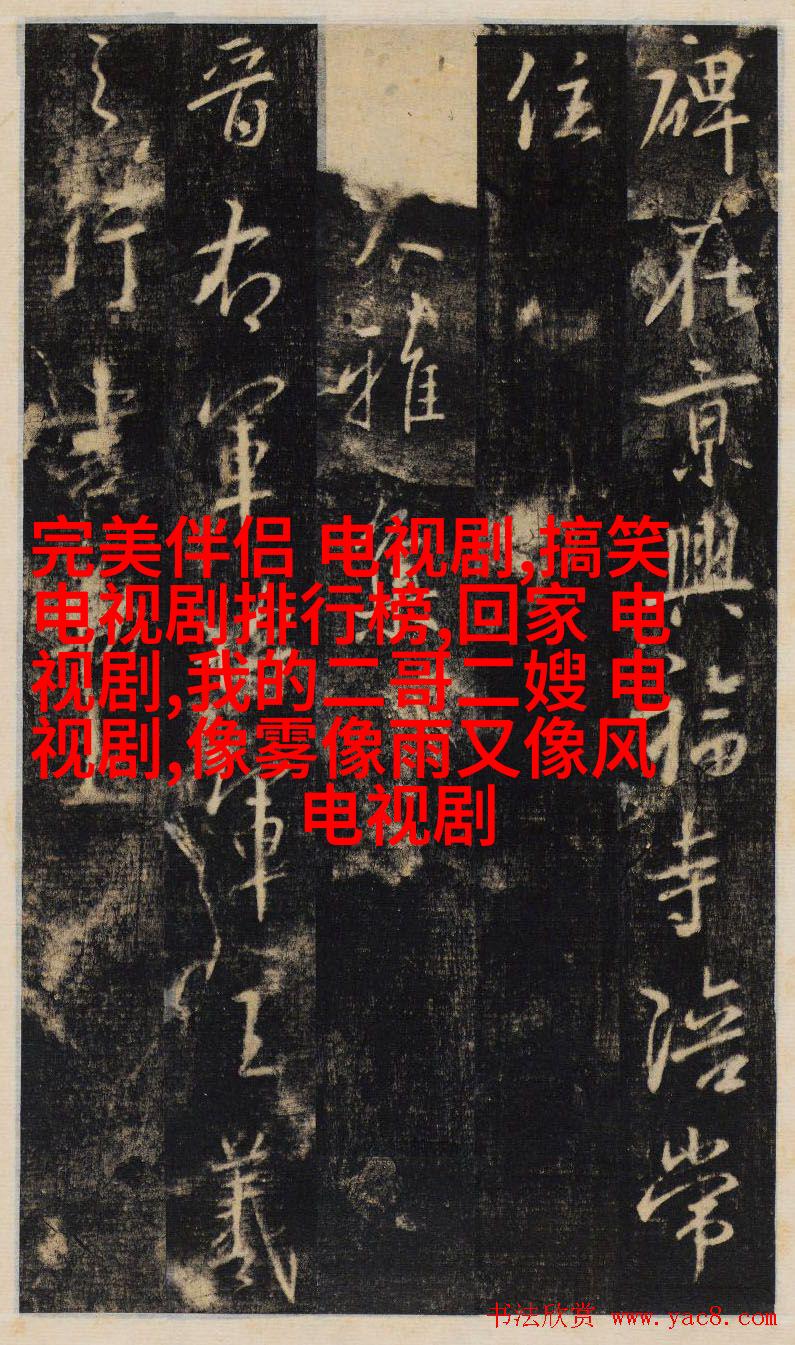 碑在京興福寺陪常
住
大雅集
晉右軍將軍王羲
之行書
完美伴侣 电视剧,搞笑
电视剧排行榜,回家 电
视剧,我的二哥二嫂 电
视剧,像雾像雨又像风
电视剧
书法欣赏 www.yac8.com